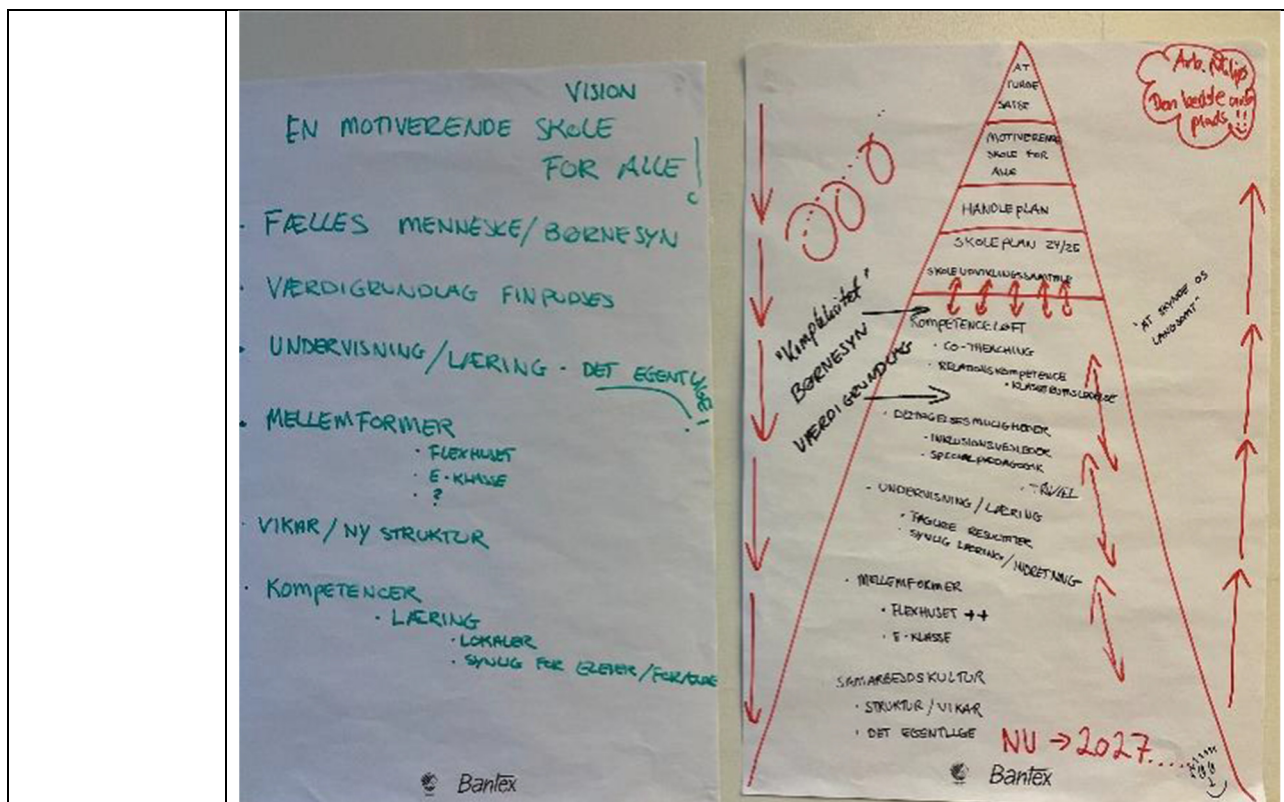 VISION
EN MOTIVERENDE SKOLE
FOR ALLE!
· FÆLLES MENNESKE/BØRNESYN
· VÆRDIGRUNDLAG FINPUDSES
· UNDERVISNING/LÆRING · DET EGENTLIGE!
· MELLEMFORMER
· FLEXHUSET
· E-KLASSE
· ?
· VIKAR/NY STRUKTUR
· KOMPETENCER
· LÆRING
· LOKALER
· SYNLIG FOR ELEVER/FORÆLDRE
Bantex
AT
TURDE
SATSE
MOTIVERENDE
SKOLE FOR
ALLE
HANDLEPLAN
SKOLEPLAN 24/25
SKOLEUDVIKLINGSSAMTALE
KOMPETENCELØFT
· CO-THEACHING
· RELATIONSKOMPETENCE
· KLASSERUMSLEDELSE
· DELTAGELSESMULIGHEDER
· INKLUSIONSVEJLEDER
· SPECIALPÆDAGOGIK
· TRIVSEL
· UNDERVISNING/LÆRING
· FAGLIGE RESULTATER
· SYNLIG LÆRING/INDRETNING
· MELLEMFORMER
· FLEXHUSET ++
· E-KLASSE
SAMARBEJDSKULTUR
· STRUKTUR/VIKAR
· DET EGENTLIGE
NU → 2027.....
Bantex
"Kompleksitet"
BØRNESYN
VÆRDIGRUNDLAG
"AT SKYNDE OS
LANGSOMT"
Arb.
Den bedste
plads!!